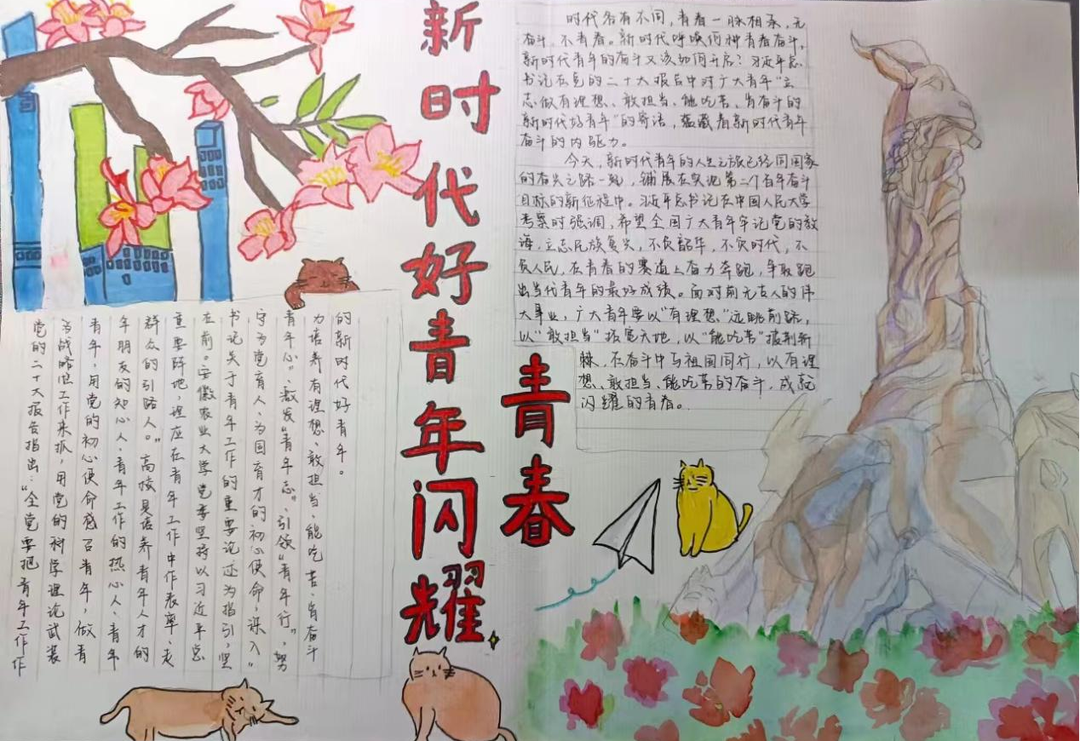 新时代好青年闪耀
青春
时代各有不同，青春一脉相承，无
奋斗，不青春。新时代呼唤何种青春奋斗，
新时代青年的奋斗又该如何开启？习近平总
书记在党的二十大报告中对广大青年“立
志做有理想、敢担当、能吃苦、肯奋斗的
新时代好青年”的寄语，蕴藏着新时代青年
奋斗的内驱力。
今天，新时代青年的人生之旅已经同国家
的奋进之路一起，铺展在实现第二个百年奋斗
目标的新征程中。习近平总书记在中国人民大学
考察时强调，希望全国广大青年牢记党的教
诲，立志民族复兴，不负韶华，不负时代，不
负人民，在青春的赛道上奋力奔跑，争取跑
出当代青年的最好成绩。面对前无古人的伟
大事业，广大青年要以“有理想”远眺前路，
以“敢担当”拓宽天地，以“能吃苦”披荆斩
棘，在奋斗中与祖国同行，以有理
想、敢担当、能吃苦的奋斗，成就
闪耀的青春。
党的二十大报告指出：“全党要把青年工作作
为战略性工作来抓，用党的科学理论武装
青年，用党的初心使命感召青年，做青
年朋友的知心人、青年工作的热心人、青年
群众的引路人。”高校是培养青年人才的
重要阵地，理应在青年工作中作表率、走
在前。安徽农业大学党委坚持以习近平总
书记关于青年工作的重要论述为指引，坚
守为党育人、为国育才的初心使命，深入“
青年心”、激发“青年志”、引领“青年行”，努
力培养有理想、敢担当、能吃苦、肯奋斗
的新时代好青年。